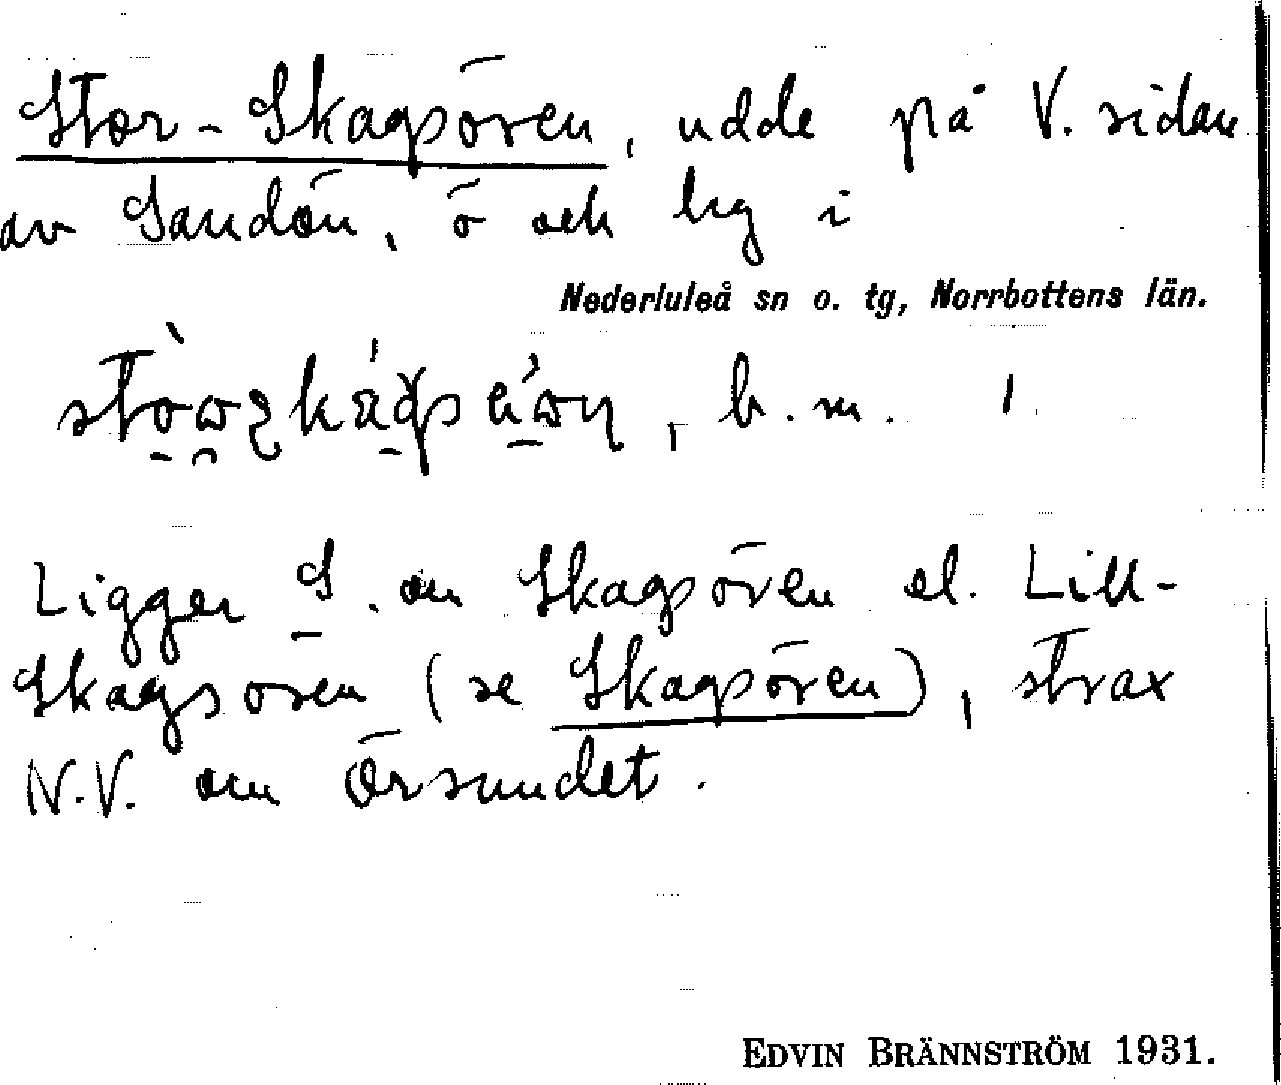 Stor-Skagsören, udde på V. sidan
av Sandön, ö och hg i
Nederluleå sn o. tg, Norrbottens län.
b. m.
Ligger S. om Skagsören el. Lill-
Skagsören (se Skagsören), strax
N.V. om Örsundet.
EDVIN BRÄNNSTRÖM 1931.